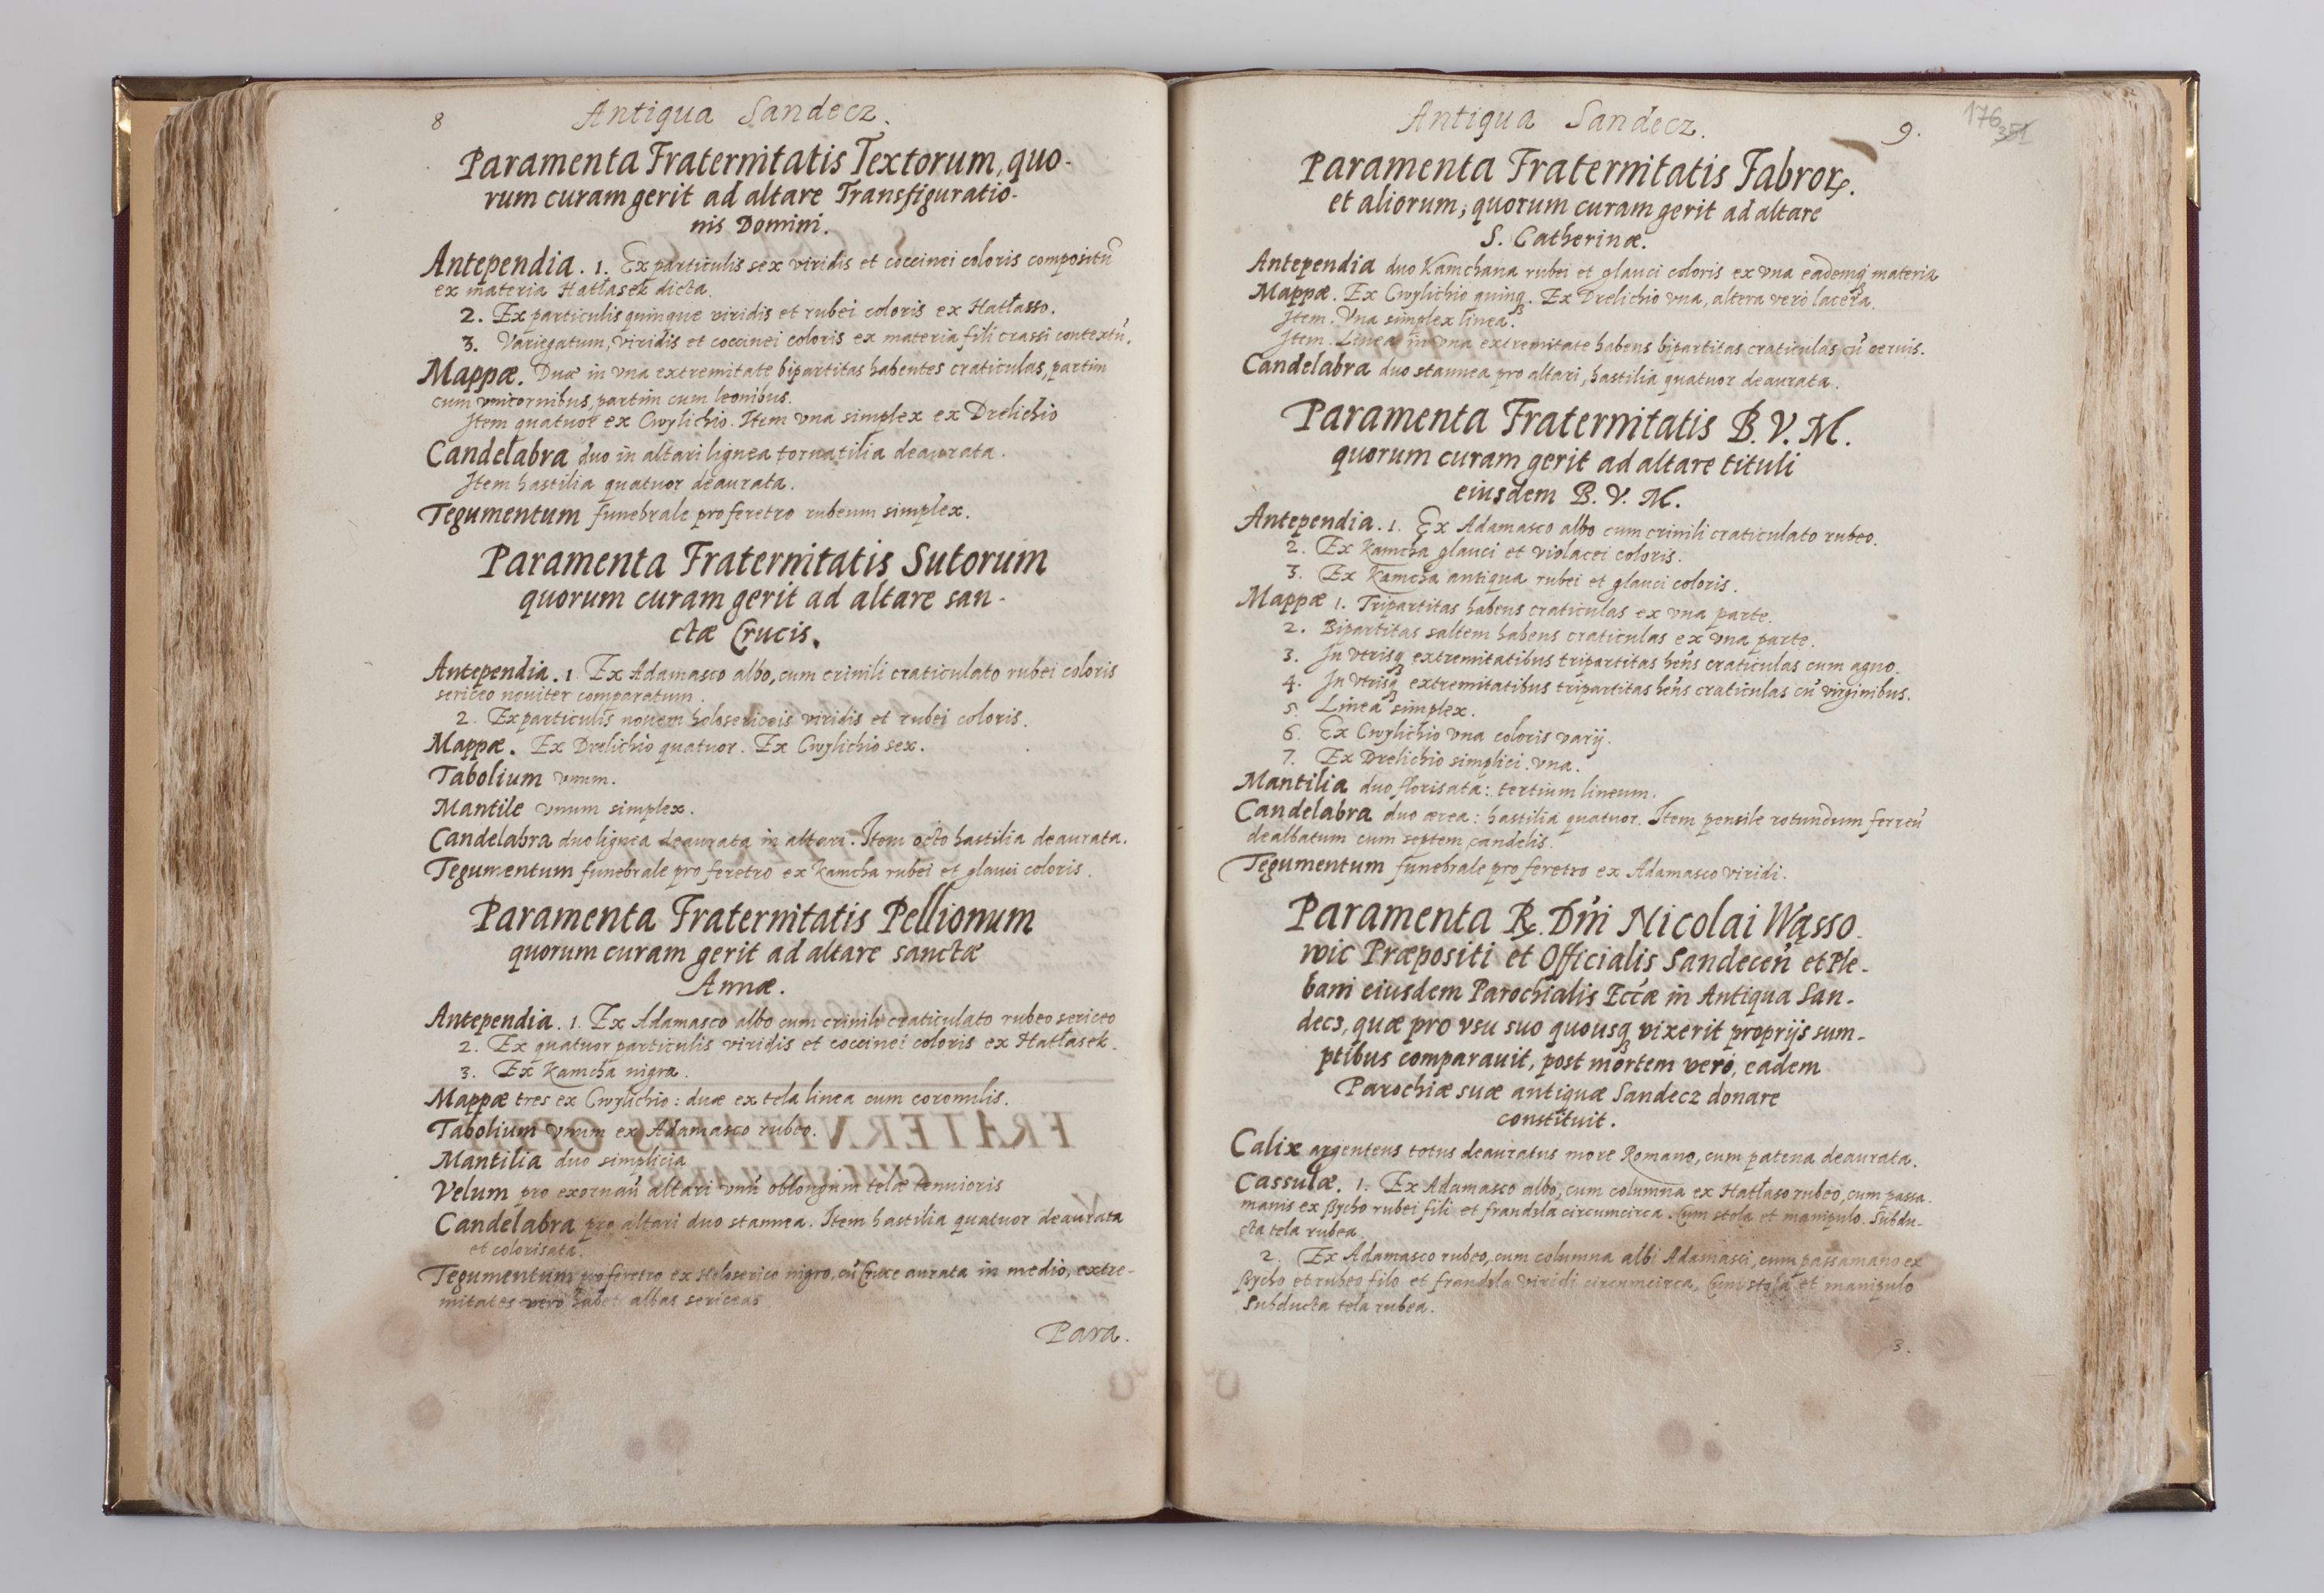 8 Antiqua Sandecz.
Paramenta Fraternitatis Textorum, quo-
rum curam gerit ad altare Transfiguratio-
nis Domini.
Antependia. 1. Ex particulis sex viridis et coccinei coloris compositũ
ex materia Hatłasek dicta.
2. Ex particulis quinque viridis et rubei coloris ex Hatłasso.
3. Variegatum, viridis et coccinei coloris ex materia fili crassi contextũ.
Mappæ. Duæ in vna extremitate bipartitas habentes craticulas, partim
cum vnicornibus, partim cum leonibus.
Item quatuor ex Cwylichio. Item vna simplex ex Drelichio
Candelabra duo in altari lignea tornatilia deaurata.
Item hastilia quatuor deaurata.
Tegumentum funebrale pro feretro rubeum simplex.
Paramenta Fraternitatis Sutorum
quorum curam gerit ad altare san-
ctæ Crucis.
Antependia. 1 Ex Adamasco albo, cum crinili craticulato rubei coloris
sericeo noviter comparatum.
2. Ex particulis novem holosericeis viridis et rubei coloris.
Mappæ. Ex Drelichio quatuor. Ex Cwylichio sex.
Tabolium vnum.
Mantile vnum simplex.
Candelabra duo lignea deaurata in altari. Item octo hastilia deaurata.
Tegumentum funebrale pro feretro ex Kamcha rubei et glauci coloris.
Paramenta Fraternitatis Pellionum
quorum curam gerit ad altare sanctæ
Annæ.
Antependia. 1. Ex Adamasco albo cum crinili craticulato rubeo sericeo
2. Ex quatuor particulis viridis et coccinei coloris ex Hatłasek.
3. Ex Kamcha nigra.
Mappæ tres ex Cwylichio: duæ ex tela linea cum coronulis.
Tabolium vnum ex Adamasco rubeo.
Mantilia duo simplicia
Velum pro exornañ altari vnũ oblongum telæ tenuioris
Candelabra pro altari duo stannea. Item hastilia quatuor deaurata
et colorisata.
Tegumentum pro feretro ex Holoserico nigro, cũ Cruce aurata in medio, extre-
mitates vero habet albas sericeas
Para.
Antiqua Sandecz. 9.
176
351
Paramenta Fraternitatis Fabroꝝ.
et aliorum, quorum curam gerit ad altare
S. Catherinæ.
Antependia duo Kamchana rubei et glauci coloris ex vna eademq́ materia
Mappæ. Ex Cwylichio quinqꝫ. Ex Drelichio vna, altera verò lacera.
Item. Vna simplex linea.
Item. Linea in vna extremitate habens bipartitas craticulas cũ cervis.
Candelabra duo stannea pro altari, hastilia quatuor deaurata.
Paramenta Fraternitatis B. V. M.
quorum curam gerit ad altare tituli
eiusdem B. V. M.
Antependia. 1. Ex Adamasco albo cum crinili craticulato rubeo.
2. Ex Kamcha glauci et violacei coloris.
3. Ex Kamcha antiqua rubei et glauci coloris.
Mappæ 1. Tripartitas habens craticulas ex vna parte.
2. Bipartitas saltem habens craticulas ex vna parte.
3. In vtrisqꝫ extremitatibus tripartitas hẽns craticulas cum agno.
4. In vtrisqꝫ extremitatibus tripartitas hẽns craticulas cũ virginibus.
5. Linea simplex.
6. Ex Cwylichio vna coloris varij.
7. Ex Drelichio simplici. vna.
Mantilia duo florisata: tertium lineum.
Candelabra duo ærea: hastilia quatuor. Item pensile rotundum ferreũ
dealbatum cum septem candelis.
Tegumentum funebrale pro feretro ex Adamasco viridi.
Paramenta R. Dñi Nicolai Wąsso-
wic Præpositi et Officialis Sandeceñ et Ple-
bani eiusdem Parochialis Eccæ in Antiqua San-
decz, quæ pro vsu suo quousqꝫ vixerit proprijs sum-
ptibus comparauit, post mortem verò, eadem
Parochiæ suæ antiquæ Sandecz donare
constituit.
Calix argenteus totus deauratus more Romano, cum patena deaurata.
Cassulæ. 1. Ex Adamasco albo, cum columna ex Hatłaso rubeo, cum passa-
manis ex ßycho rubei fili et frandzla circumcirca. Cum stola et manipulo. Subdu-
cta tela rubea.
2. Ex Adamasco rubeo, cum columna albi Adamasci, cum passamano ex
ßycho et rubeo filo et frandzla viridi circumcirca, Cum stola et manipulo
Subducta tela rubea.
3.